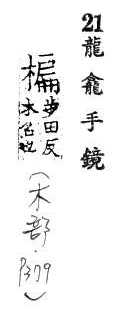 21龍龕手鏡
楄步田反
木名也
(木部·P379)